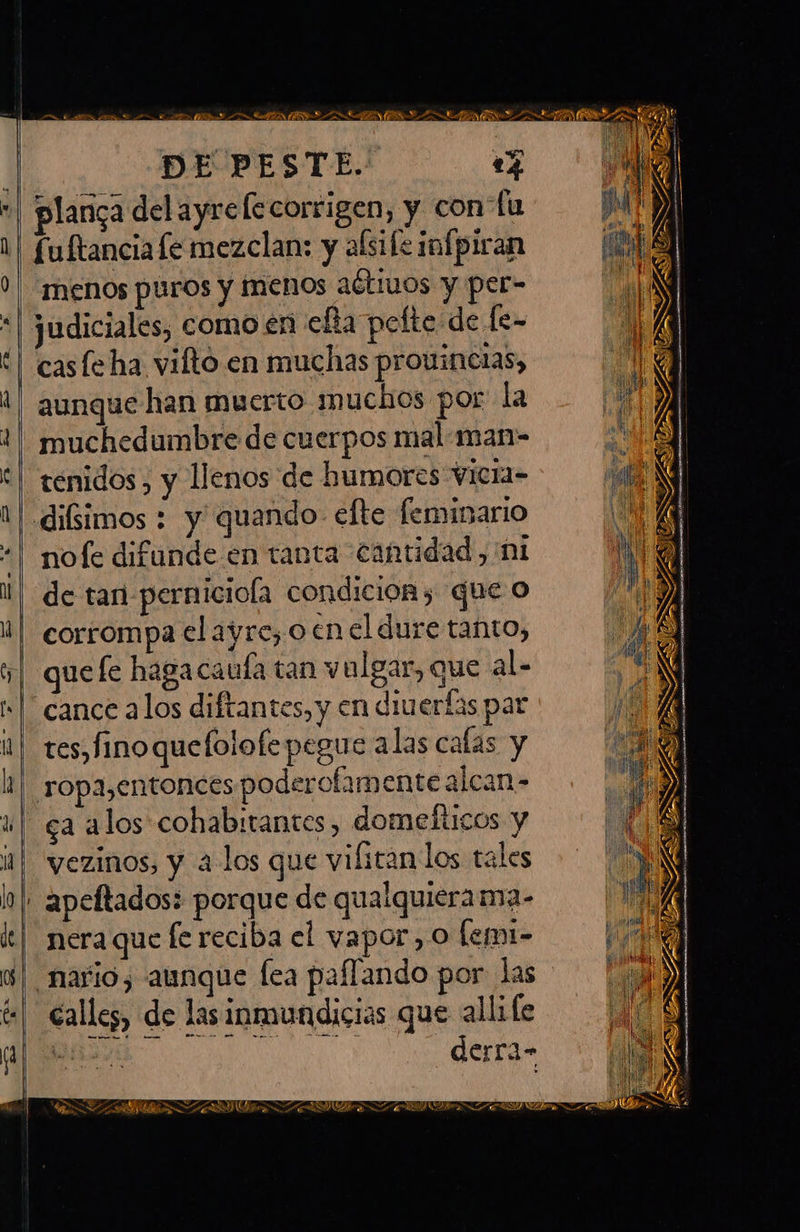 DE PESTE.
plança del ayre ſe corrigen, y con ſu
ſuſtancia ſe mezclan: y aſsi ſe inſpiran
menos puros y menos actiuos y per-
judiciales, como en eſta peſte de ſe-
cas ſe ha viſto en muchas prouincias,
aunque han muerto muchos por la
muchedumbre de cuerpos mal man-
tenidos, y llenos de humores vicia-
diſsimos: y quando eſte ſeminario
no ſe difunde en tanta cantidad, ni
de tan pernicioſa condicion, que o
corrompa el ayre, o en el dure tanto,
que ſe haga cauſa tan vulgar, que al-
cance a los diſtantes, y en diuerſas par
tes, ſino que ſolo ſe pegue a las caſas y
ropa, entonces poderoſamente alcan-
ça a los cohabitantes, domeſticos y
vezinos, y a los que viſitan los tales
apeſtados: porque de qualquiera ma-
nera que ſe reciba el vapor, o ſemi-
nario, aunque ſea paſſando por las
calles, de las inmundicias que alli ſe
derra-